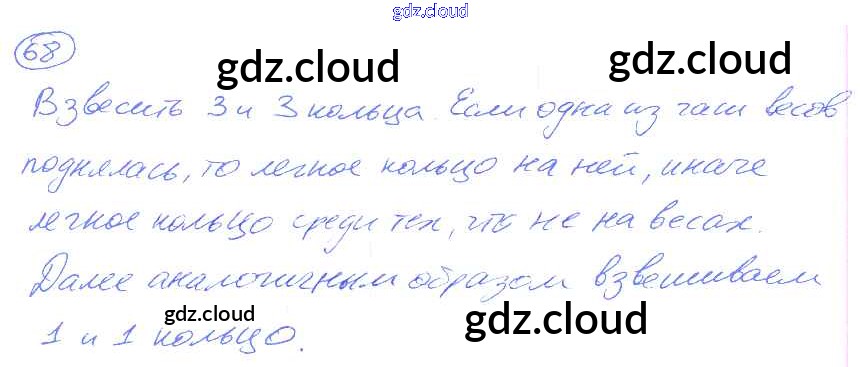 gdz.cloud
68
gdz.cloud
gdz.cloud
Взвесить 3 и 3 кольца. Если одна из чаш весов
поднялась, то легкое кольцо на ней, иначе
легкое кольцо среди тех, что не на весах.
Далее аналогичным образом взвешиваем
gdz.cloud
gdz.cloud
1 и 1 кольцо.